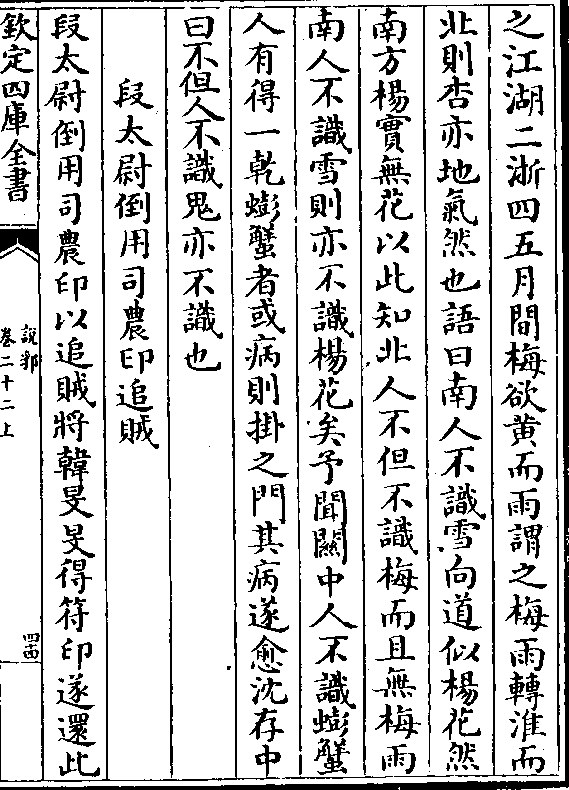 之江湖二浙四五月間梅欲黄而雨謂之梅雨轉淮而
北則杏亦地氣然也語曰南人不識雪向道似楊花然
南方楊實無花以此知北人不但不識梅而且無梅雨
南人不識雪則亦不識楊花矣予聞關中人不識蟛蟹
人有得一乾蟛蟹者或病則掛之門其病遂愈沈存中
曰不但人不識鬼亦不識也
段太尉倒用司農印追賊
段太尉倒用司農印以追賊將韓旻旻得符印遂還此
欽定四庫全書
說郛
卷二十二上
四